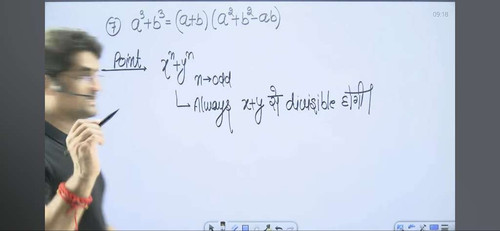 09:18
⑦ a³+b³ = (a+b) (a²+b²-ab)
Point → xⁿ+yⁿ
n→odd
↳ Always x+y से divisible होगी।